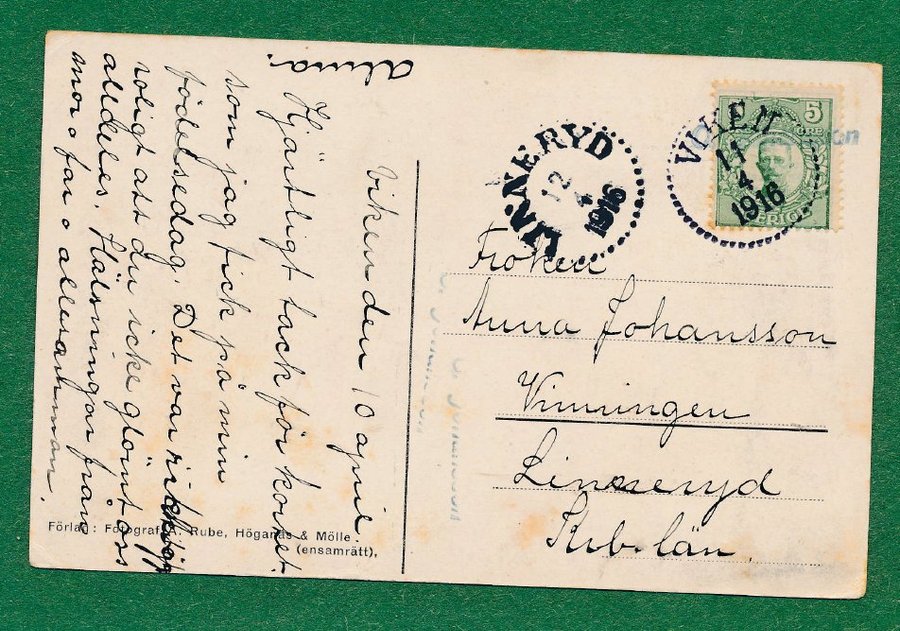 Viken den 10 april
Hjärtligt tack för kortet
som jag fick på min
födelsedag. Det var riktigt
roligt att du icke glömt oss
alldeles. Hälsningar från
mor o far o allesamman.
alma.
LINNERYD
12
4
1916
VIKEN
11
4
1916
5
ÖRE
SVERIGE
Fröken
Anna Johansson
Vinningen
Linneryd
Krb. län.
Förlag: Fotograf A. Rube, Höganäs & Mölle
(ensamrätt).